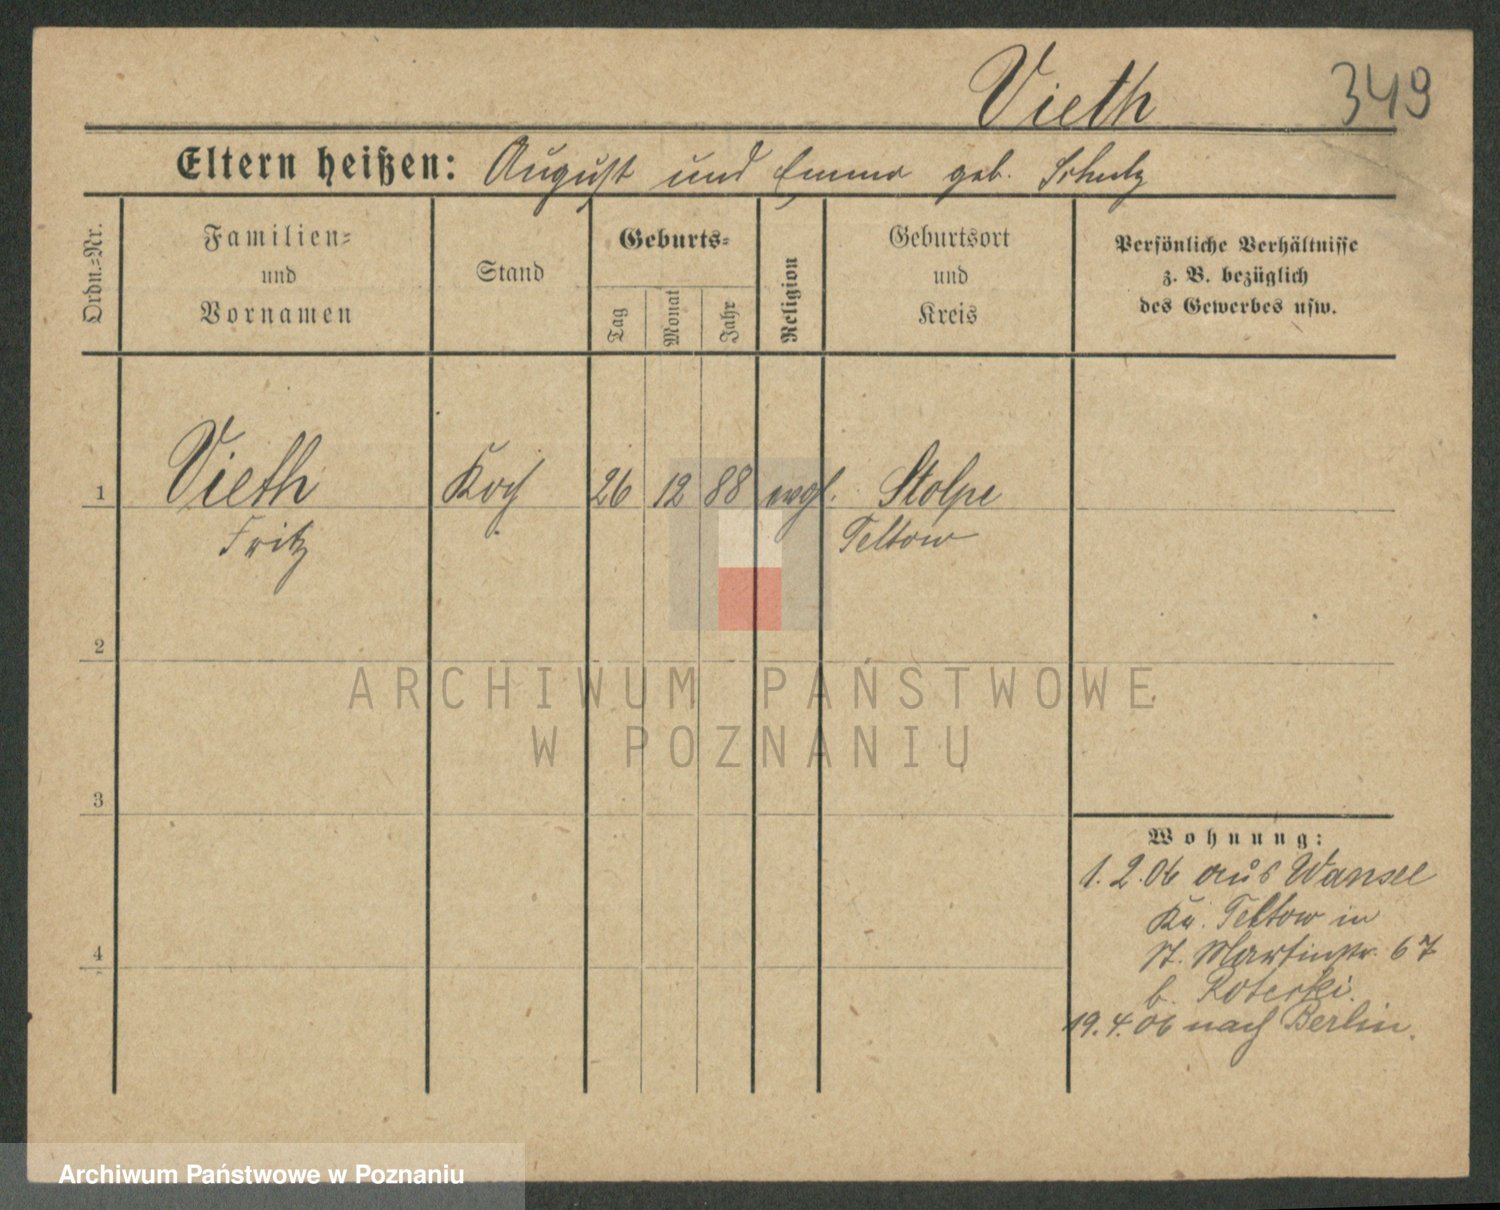 Vieth 349
Eltern heißen: August und Emma geb. Schulz
Ordn.-Nr.
Familien-
und
Vornamen
Stand
Geburts-
Tag
Monat
Jahr
Religion
Geburtsort
und
Kreis
Persönliche Verhältnisse
z. B. bezüglich
des Gewerbes usw.
1 Vieth Koch 26 12 88 evgl. Stolpe
Fritz Teltow
2
3
4
Wohnung:
1.2.06 aus Wansee
Kr. Teltow in
St. Martinstr. 67
b. Roterski.
19.4.06 nach Berlin.
ARCHIWUM PAŃSTWOWE
W POZNANIU
Archiwum Państwowe w Poznaniu